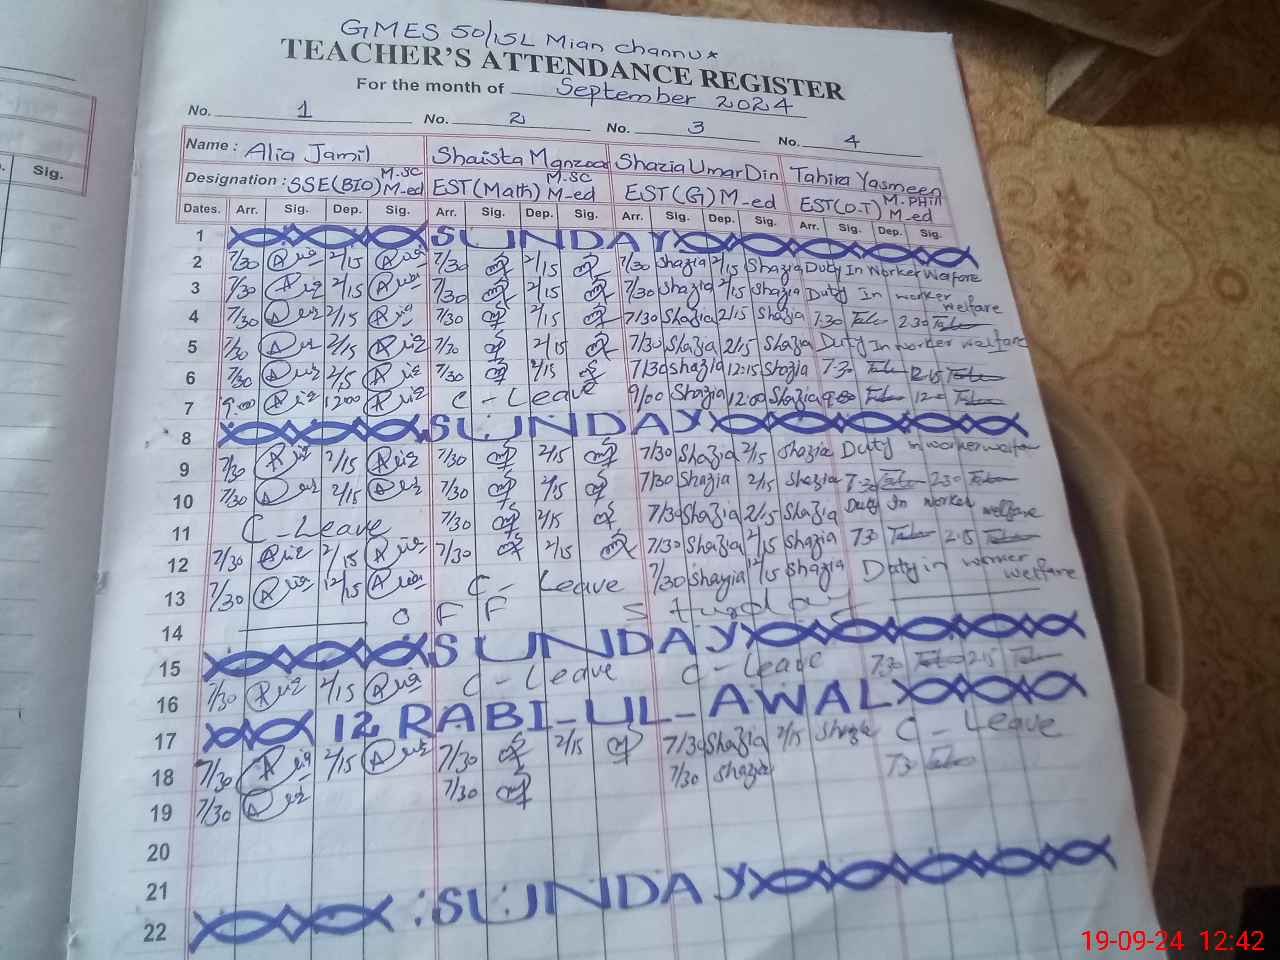 GMES 50/15L Mian Channu*
TEACHER'S ATTENDANCE REGISTER
For the month of September 2024
No. 1 No. 2 No. 3 No. 4
Name: Alia Jamil Shaista Manzoor Shazia Umar Din Tahira Yasmeen
Designation: SSE(BIO) M.SC M-ed EST(Math) M.SC M-ed EST(G) M-ed EST(O.T) M.PHil M-ed
Sig.
Dates. Arr. Sig. Dep. Sig. Arr. Sig. Dep. Sig. Arr. Sig. Dep. Sig. Arr. Sig. Dep. Sig.
1 SUNDAY
2 7/30 2/15 7/30 2/15 7/30 Shazia 2/15 Shazia Duty In Worker Welfare
3 7/30 2/15 7/30 2/15 7/30 Shazia 2/15 Shazia Duty In worker welfare
4 7/30 2/15 7/30 2/15 7/30 Shazia 2/15 Shazia 7:30 2:30
5 7/30 2/15 7/30 2/15 7/30 Shazia 2/15 Shazia Duty In worker welfare
6 7/30 2/15 7/30 2/15 7/30 Shazia 12:15 Shazia 7:30 12:15
7 9:00 12:00 C-Leave 9/00 Shazia 12:00 Shazia 9:00 12:00
8 SUNDAY
9 7/30 2/15 7/30 2/15 7/30 Shazia 2/15 Shazia Duty in worker welfare
10 7/30 2/15 7/30 2/15 7/30 Shazia 2/15 Shazia 7:30 2:30
11 C-Leave 7/30 2/15 7/30 Shazia 2/15 Shazia Duty In worker welfare
12 7/30 2/15 7/30 2/15 7/30 Shazia 2/15 Shazia 7:30 2:15
13 7/30 12/15 C-Leave 7/30 Shazia 12/15 Shazia Duty in worker welfare
14 OFF Sturday
15 SUNDAY
16 7/30 2/15 C-Leave C-Leave 7:30 2:15
17 12 RABI-UL-AWAL
18 7/30 2/15 7/30 2/15 7/30 Shazia 2/15 Shazia C-Leave
19 7/30 7/30 7/30 Shazia 7:30
20
21
22 SUNDAY
19-09-24 12:42